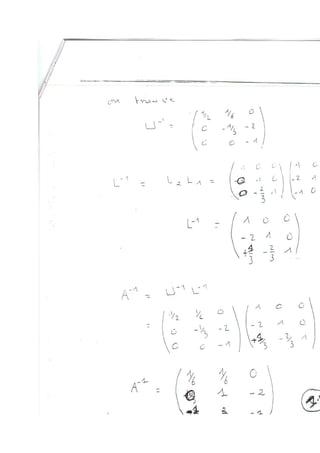 on trouve
U⁻¹ = ( 1/2 1/6 0
0 -1/3 -2
0 0 -1 )
L⁻¹ = L₂ L₁ = ( 1 0 0 ) ( 1 0
0 1 0 -2 1
0 -2/3 1 -1 0
L⁻¹ = ( 1 0 0
-2 1 0
+1/3 -2/3 1 )
A⁻¹ = U⁻¹ L⁻¹
= ( 1/2 1/6 0 ) ( 1 0 0 )
( 0 -1/3 -2 ) ( -2 1 0 )
( 0 0 -1 ) ( +1/3 -2/3 1 )
A⁻¹ = ( 1/6 1/6 0
0 1 -2
-1 )